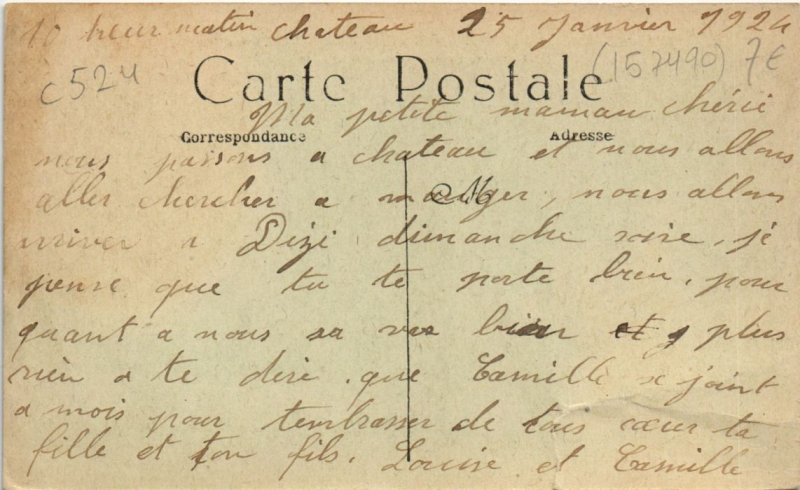 10 heur matin chateau 25 Janvier 1924
c524 (157490) 7€
Carte Postale
Ma petite maman chérie
Correspondance Adresse
nous passons a chateau et nous allons
aller chercher a manger, nous allons
arriver a Dizi dimanche soire, je
pense que tu te porte bien, pour
quant a nous sa va bien et plus
rien a te dire. que Camille se joint
a mois pour tembrasser de tous cœur ta
fille et ton fils. Louise et Camille